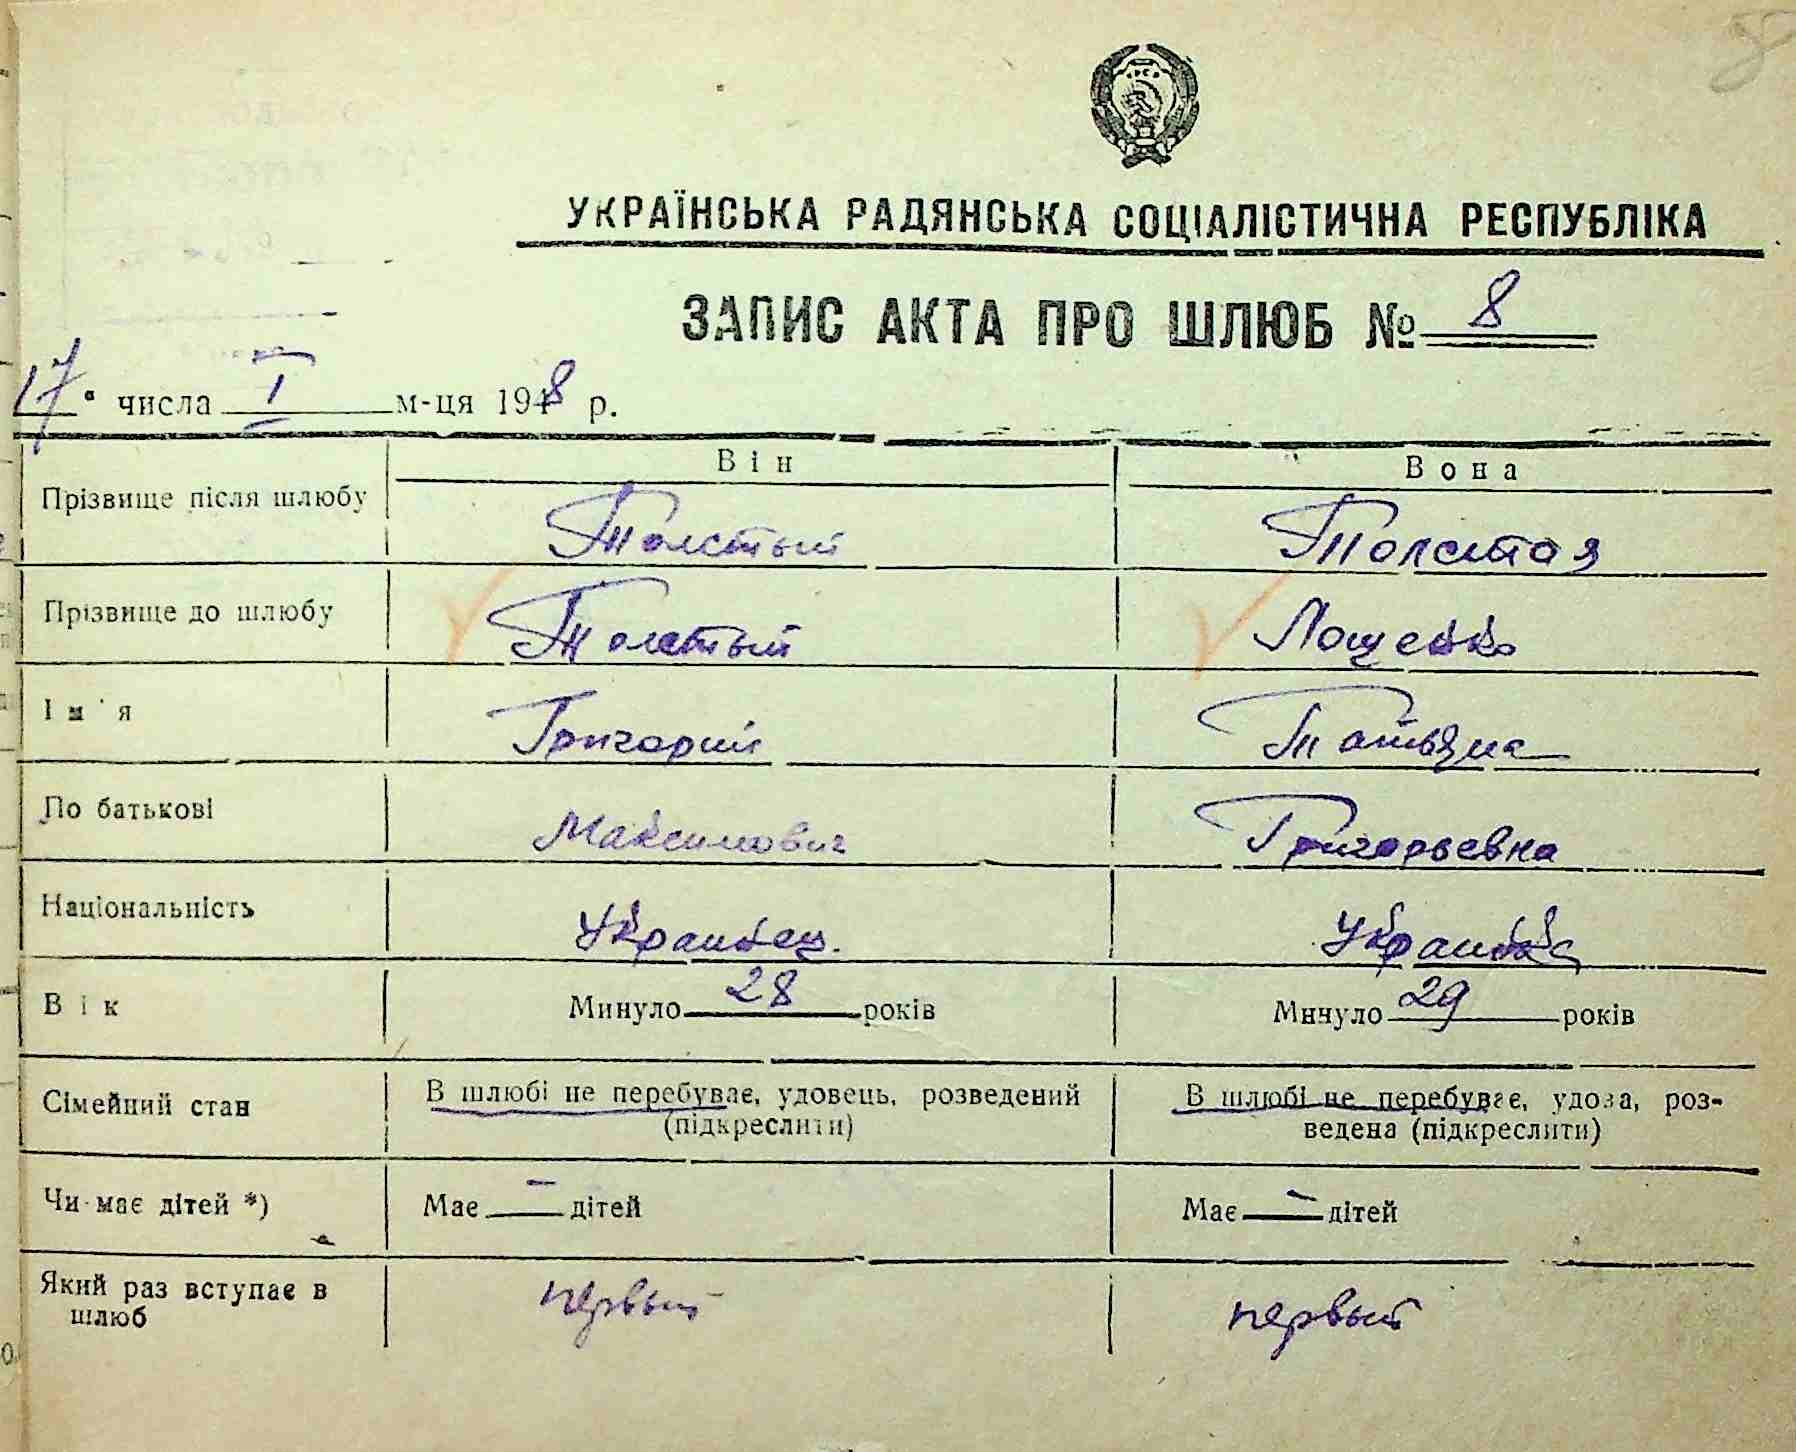 8
УКРАЇНСЬКА РАДЯНСЬКА СОЦІАЛІСТИЧНА РЕСПУБЛІКА
ЗАПИС АКТА ПРО ШЛЮБ № 8
17 " числа I м-ця 1948 р.
Він Вона
Прізвище після шлюбу Толстый Толстоя
Прізвище до шлюбу Толстый Лощенко
Ім'я Григорий Татьяна
По батькові Максимович Григорьевна
Національність Украинец. Украинка
Вік Минуло 28 років Минуло 29 років
Сімейний стан В шлюбі не перебуває, удовець, розведений (підкреслити) В шлюбі не перебуває, удова, роз-
ведена (підкреслити)
Чи має дітей *) Має — дітей Має — дітей
Який раз вступає в шлюб первый первый